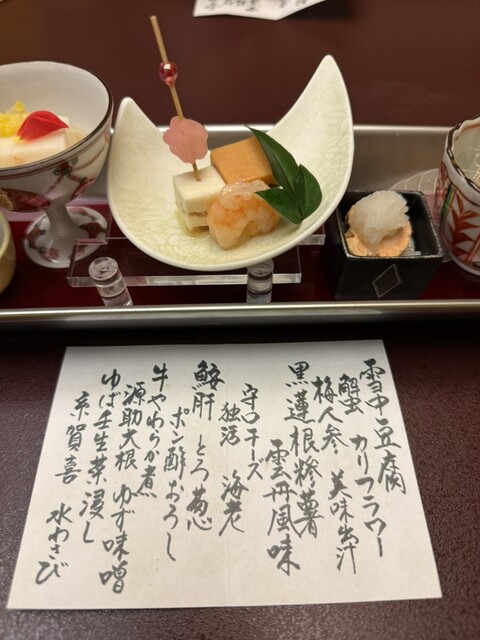 雪中豆腐
蟹 カリフラワー
梅人参 美味出汁
黒蓮根糁薯
雲丹風味
守口チーズ
独活 海老
鮟肝 とろ葱
ポン酢おろし
牛やわらか煮
源助大根 ゆず味噌
ゆば壬生菜浸し
糸賀喜 水わさび